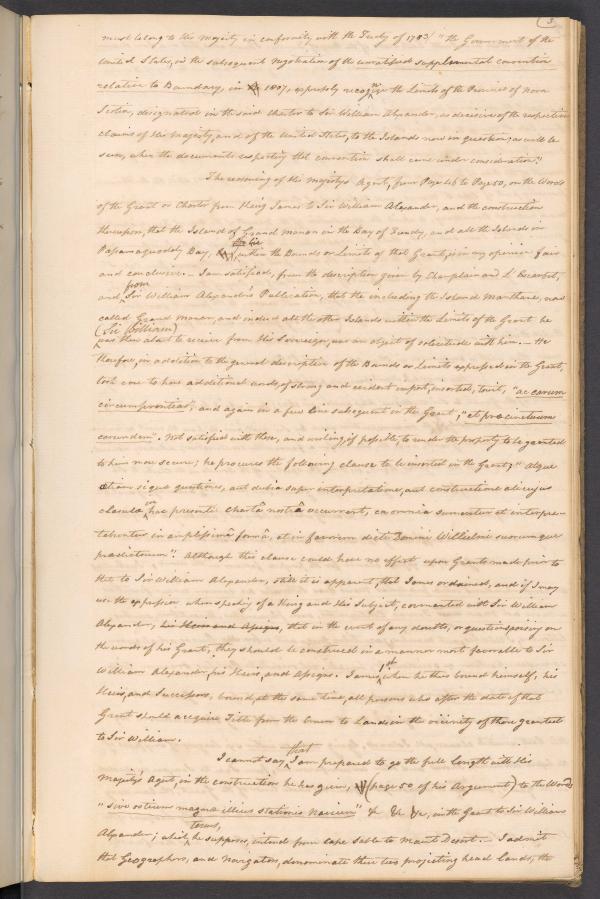 3
must belong to His Majesty in conformity with the Treaty of 1783/ "the Government of the
United States, in the subsequent negotiation of the unratified supplemental convention
relative to Boundary, in 1807, expressly recognize the Limits of the Province of Nova
Scotia, designated in the said Charter to Sir William Alexander, as decisive of the respective
claims of His Majesty, and of the United States, to the Islands now in question; as will be
seen, when the documents respecting that convention shall come under consideration."
The reasoning of His Majestys Agent, from Page 46 to Page 50, on the Words
of the Grant or Charter from King James to Sir William Alexander, and the construction
thereupon, that the Island of Grand manan in the Bay of Fundy, and all the Islands in
Passamaquoddy Bay, lie within the Bounds or Limits of that Grant, is in my opinion fair
and conclusive. — I am satisfied, from the description given by Champlain and L'Escarbot,
and from Sir William Alexander's Publication, that the including the Island Manthane, now
called Grand Manan, and indeed all the other Islands within the Limits of the Grant he
(Sir William)
was then about to receive from His Sovereign, was an object of solicitude with him. — He
therefore, in addition to the general description of the Bounds or Limits expressed in the Grant,
took care to have additional words of strong and evident import, inserted, towit, "ac earum
circumferentias", and again in a few lines subsequent in the Grant, "et procinctuum
earundem". Not satisfied with these, and wishing, if possible, to render the property to be granted
to him more secure; he procures the following clause to be inserted in the Grant, "Atque
etiam si quæ questiones, aut dubia super interpretatione, aut constructione alicujus
clausulæ in hac presenti chartâ nostrâ occurrent, ea omnia sumentur et interpre-
tabuntur in amplissimâ formâ, et in favorem dicti Domini Willielmi suorumque
prædictorum". Although this clause could have no effect upon Grants made prior to
that to Sir William Alexander, still it is apparent, that James ordained, and if I may
use the expression when speaking of a King and His Subject, covenanted with Sir William
Alexander, his Heirs and Assigns, that in the event of any doubts, or questions arising on
the words of his Grant, they should be construed in a manner most favorable to Sir
William Alexander, his Heirs, and Assigns. James 1st, when he thus bound himself, his
Heirs, and Successors, bound, at the same time, all persons who after the date of that
Grant should acquire Title from the Crown to Lands in the vicinity of those granted
to Sir William.
I cannot say, that I am prepared to go the full length with His
Majesty's Agent, in the construction he has given, (page 50 of his Argument) to the Words
"sive ostium magnæ illius stationis navium" & &c &c, in the Grant to Sir William
Alexander; which terms, he supposes, intend from cape Sable to mount Desert. — I admit
that Geographers, and Navigators, denominate these two projecting head lands, the